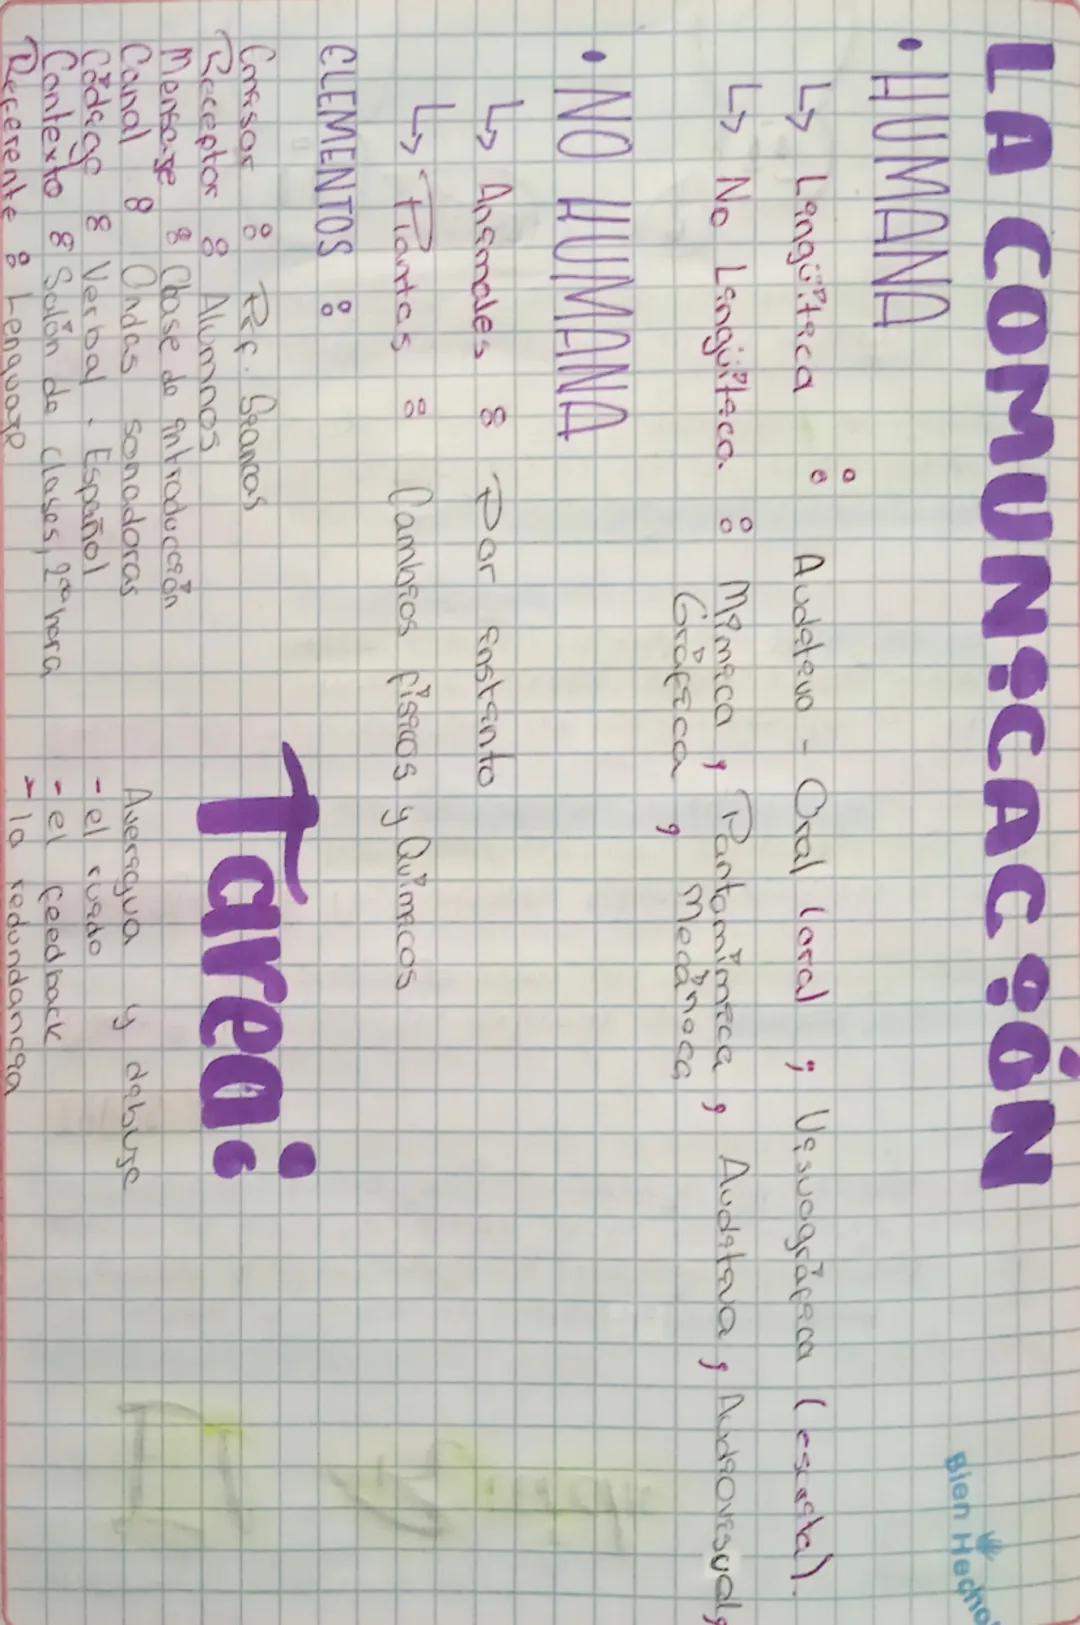 LA COMUNICACIÓN
Bien Hecho
• HUMANA
↳ Lingüítica : Auditivo - Oral (oral) ; Visuográfica (escrita).
↳ No Lingüítica : Mímica, Pantomímica, Auditiva, Audiovisual,
Gráfica, Mecánica
• NO HUMANA
↳ Animales : Por instinto
↳ Plantas : Cambios físicos y Químicos
ELEMENTOS :
Emisor : Prf. Biancas
Receptor : Alumnos
Mensaje : Clase de introducción
Canal : Ondas sonadoras
Código : Verbal. Español
Contexto : Salón de clases, 2da hora
Referente : Lenguaje
Tarea:
Averigua y dibuje
- el ruido
- el feedback
- la redundancia